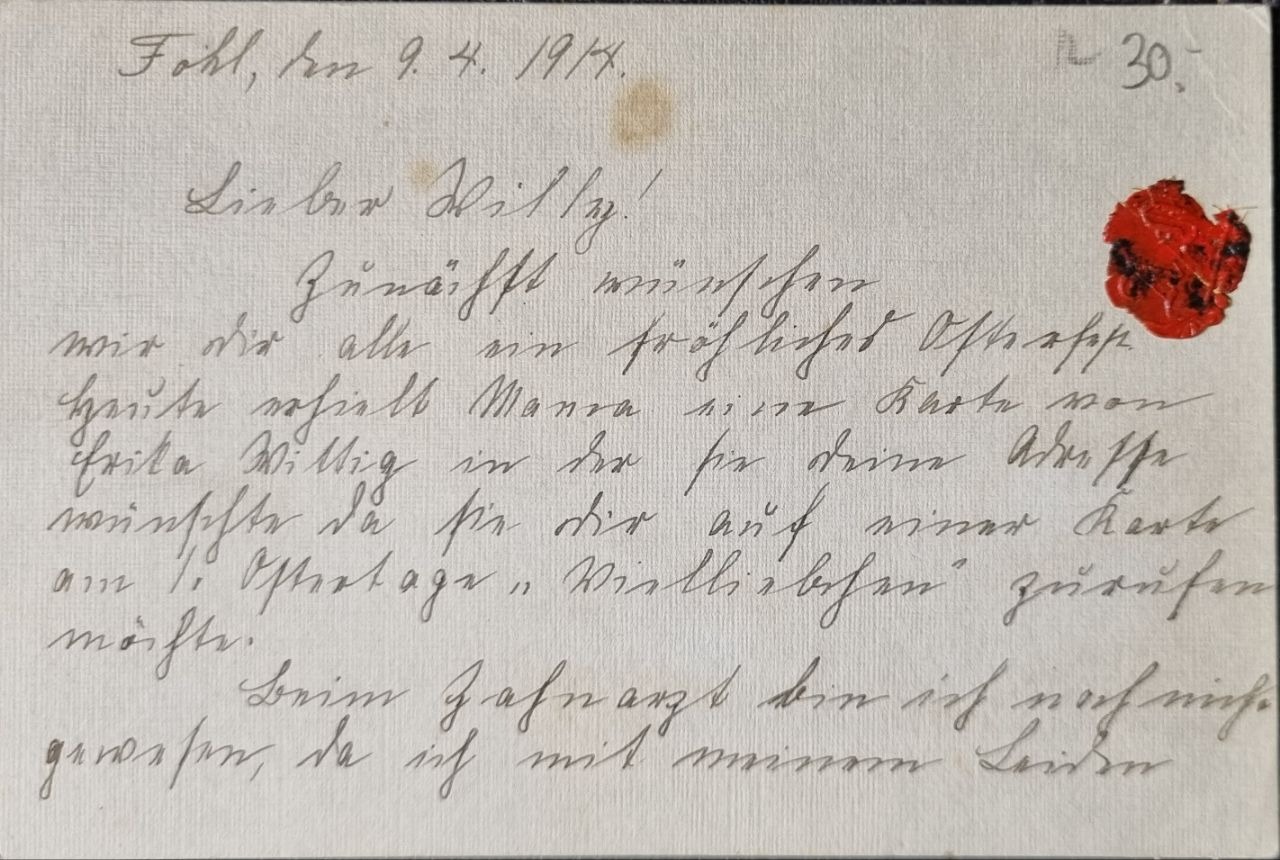 Föhl, den 9. 4. 1914.
30.-
Lieber Willy!
Zunächst wünschen
wir dir alle ein fröhliches Osterfest.
Heute erhielt Mama eine Karte von
Erika Wittig in der sie deine Adresse
wünschte da sie dir auf einer Karte
am 1. Ostertage „Vielliebchen" zurufen
möchte.
Beim Zahnarzt bin ich noch nicht
gewesen, da ich mit meinem Leiden